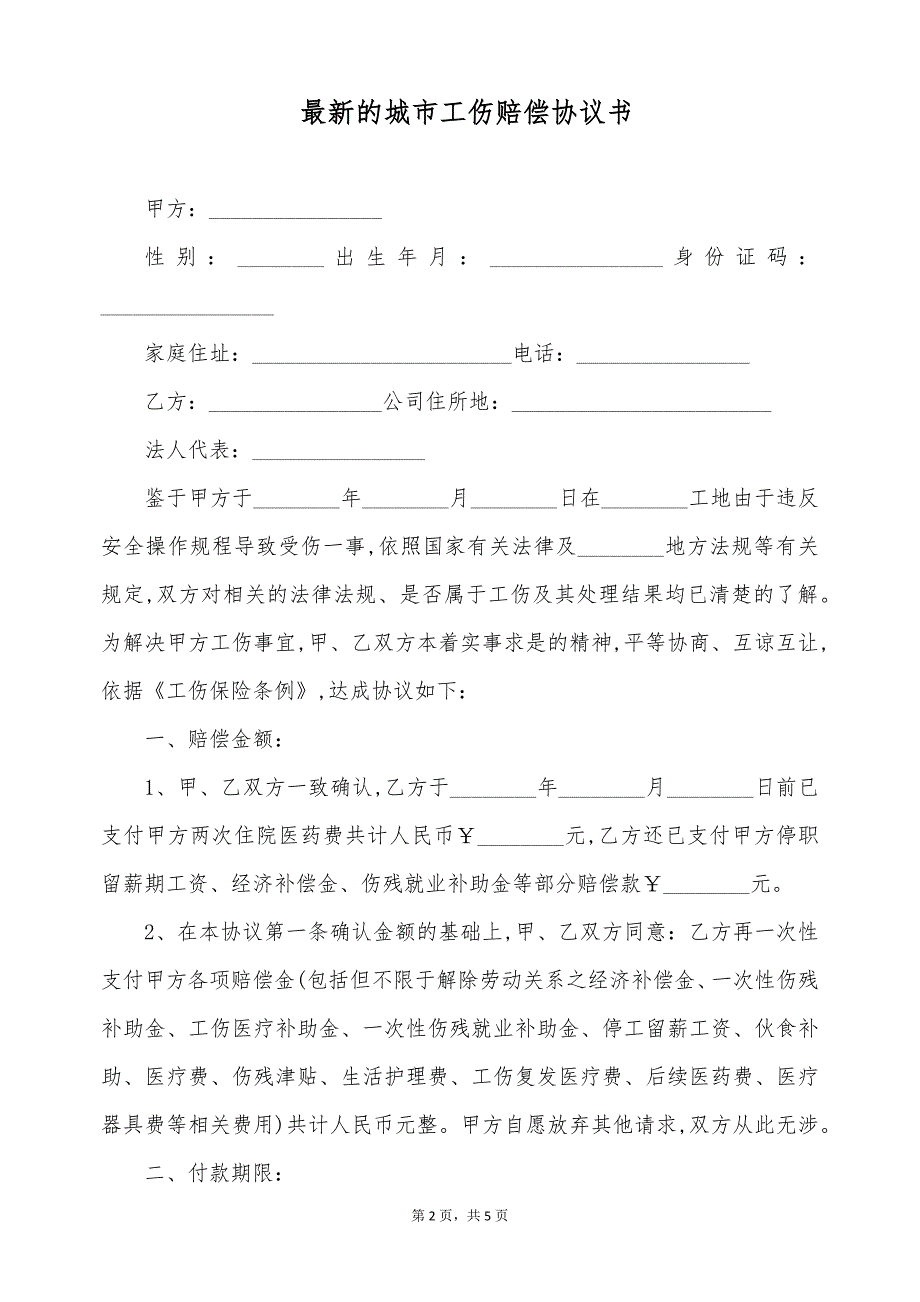 最新的城市工伤赔偿协议书
甲方：________________
性别：________出生年月：________________身份证码：
________________
家庭住址：________________________电话：________________
乙方：________________公司住所地：________________________
法人代表：________________
鉴于甲方于________年________月________日在________工地由于违反
安全操作规程导致受伤一事,依照国家有关法律及________地方法规等有关
规定,双方对相关的法律法规、是否属于工伤及其处理结果均已清楚的了解。
为解决甲方工伤事宜,甲、乙双方本着实事求是的精神,平等协商、互谅互让,
依据《工伤保险条例》,达成协议如下：
一、赔偿金额：
1、甲、乙双方一致确认,乙方于________年________月________日前已
支付甲方两次住院医药费共计人民币￥________元,乙方还已支付甲方停职
留薪期工资、经济补偿金、伤残就业补助金等部分赔偿款￥________元。
2、在本协议第一条确认金额的基础上,甲、乙双方同意：乙方再一次性
支付甲方各项赔偿金(包括但不限于解除劳动关系之经济补偿金、一次性伤残
补助金、工伤医疗补助金、一次性伤残就业补助金、停工留薪工资、伙食补
助、医疗费、伤残津贴、生活护理费、工伤复发医疗费、后续医药费、医疗
器具费等相关费用)共计人民币元整。甲方自愿放弃其他请求,双方从此无涉。
二、付款期限：
第 2 页，共 5 页